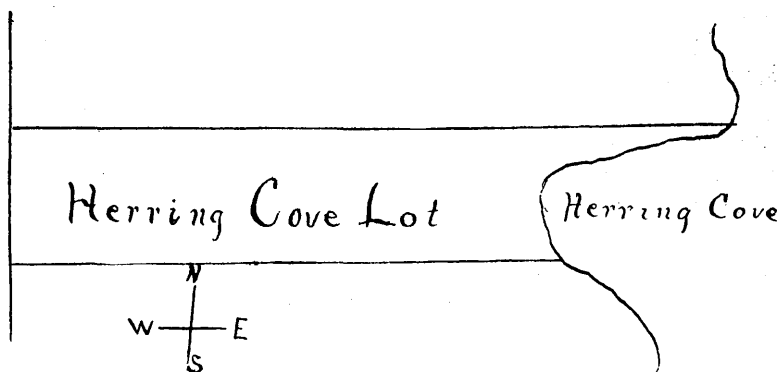 Herring Cove Lot
Herring Cove
N
W E
S